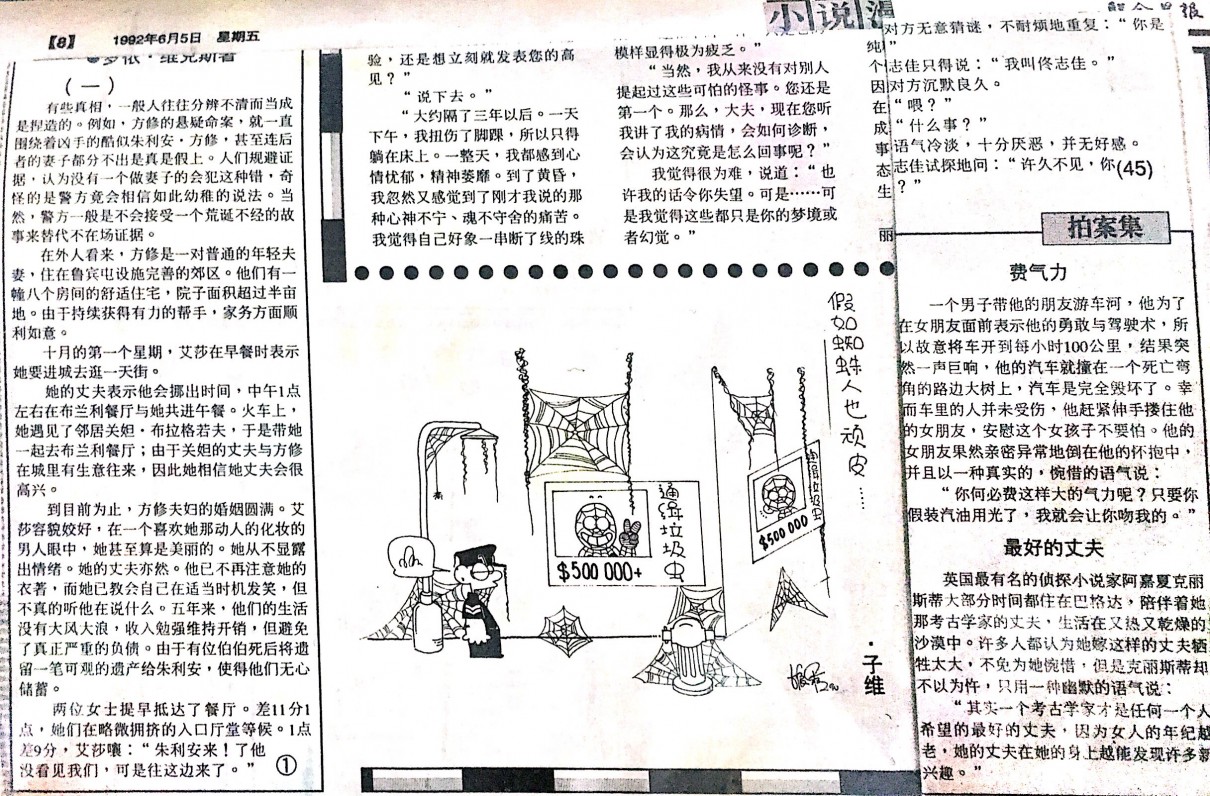 【8】 1992年6月5日 星期五
小说
●罗依·维克斯著
（一）
有些真相，一般人往往分辨不清而当成
是捏造的。例如，方修的悬疑命案，就一直
围绕着凶手的酷似朱利安·方修，甚至连后
者的妻子都分不出是真是假上。人们规避证
据，认为没有一个做妻子的会犯这种错，奇
怪的是警方竟会相信如此幼稚的说法。当
然，警方一般是不会接受一个荒诞不经的故
事来替代不在场证据。
在外人看来，方修是一对普通的年轻夫
妻，住在鲁宾屯设施完善的郊区。他们有一
幢八个房间的舒适住宅，院子面积超过半亩
地。由于持续获得有力的帮手，家务方面顺
利如意。
十月的第一个星期，艾莎在早餐时表示
她要进城去逛一天街。
她的丈夫表示他会挪出时间，中午1点
左右在布兰利餐厅与她共进午餐。火车上，
她遇见了邻居关妲·布拉格若夫，于是带她
一起去布兰利餐厅；由于关妲的丈夫与方修
在城里有生意往来，因此她相信她丈夫会很
高兴。
到目前为止，方修夫妇的婚姻圆满。艾
莎容貌姣好，在一个喜欢她那动人的化妆的
男人眼中，她甚至算是美丽的。她从不显露
出情绪。她的丈夫亦然。他已不再注意她的
衣著，而她已教会自己在适当时机发笑，但
不真的听他在说什么。五年来，他们的生活
没有大风大浪，收入勉强维持开销，但避免
了真正严重的负债。由于有位伯伯死后将遗
留一笔可观的遗产给朱利安，使得他们无心
储蓄。
两位女士提早抵达了餐厅。差11分1
点，她们在略微拥挤的入口厅堂等候。1点
差9分，艾莎嚷：“朱利安来！了他
没看见我们，可是往这边来了。” ①
验，还是想立刻就发表您的高
见？”
“说下去。”
“大约隔了三年以后。一天
下午，我扭伤了脚踝，所以只得
躺在床上。一整天，我都感到心
情忧郁，精神萎靡。到了黄昏，
我忽然又感觉到了刚才我说的那
种心神不宁、魂不守舍的痛苦。
我觉得自己好象一串断了线的珠
模样显得极为疲乏。”
“当然，我从来没有对别人
提起过这些可怕的怪事。您还是
第一个。那么，大夫，现在您听
我讲了我的病情，会如何诊断，
会认为这究竟是怎么回事呢？”
我觉得很为难，说道：“也
许我的话令你失望。可是……可
是我觉得这些都只是你的梦境或
者幻觉。”
纯
个
因
在
成
事
态
生
丽
对方无意猜谜，不耐烦地重复：“你是
”
志佳只得说：“我叫佟志佳。”
对方沉默良久。
“喂？”
“什么事？”
语气冷淡，十分厌恶，并无好感。
志佳试探地问：“许久不见，你
？” (45)
假如蜘蛛人也顽皮……
通缉垃圾虫
$500 000+
通缉垃圾虫
$500 000
·子维
拍案集
费气力
一个男子带他的朋友游车河，他为了
在女朋友面前表示他的勇敢与驾驶术，所
以故意将车开到每小时100公里，结果突
然一声巨响，他的汽车就撞在一个死亡弯
角的路边大树上，汽车是完全毁坏了。幸
而车里的人并未受伤，他赶紧伸手搂住他
的女朋友，安慰这个女孩子不要怕。他的
女朋友果然亲密异常地倒在他的怀抱中，
并且以一种真实的，惋惜的语气说：
“你何必费这样大的气力呢？只要你
假装汽油用光了，我就会让你吻我的。”
最好的丈夫
英国最有名的侦探小说家阿嘉夏克丽
斯蒂大部分时间都住在巴格达，陪伴着她
那考古学家的丈夫，生活在又热又乾燥的
沙漠中。许多人都认为她嫁这样的丈夫牺
牲太大，不免为她惋惜，但是克丽斯蒂却
不以为忤，只用一种幽默的语气说：
“其实一个考古学家才是任何一个人
希望的最好的丈夫，因为女人的年纪越
老，她的丈夫在她的身上越能发现许多新
兴趣。”